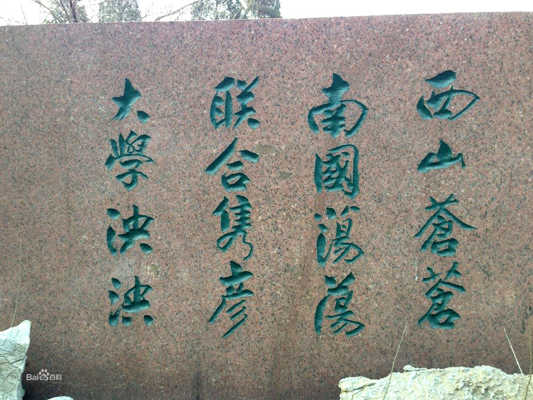 西山蒼蒼
南國蕩蕩
联合隽彦
大學泱泱
Bai百科